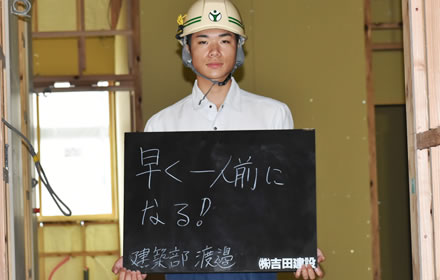 早く一人前に
なる!!
建築部 渡邉
㈱吉田建設